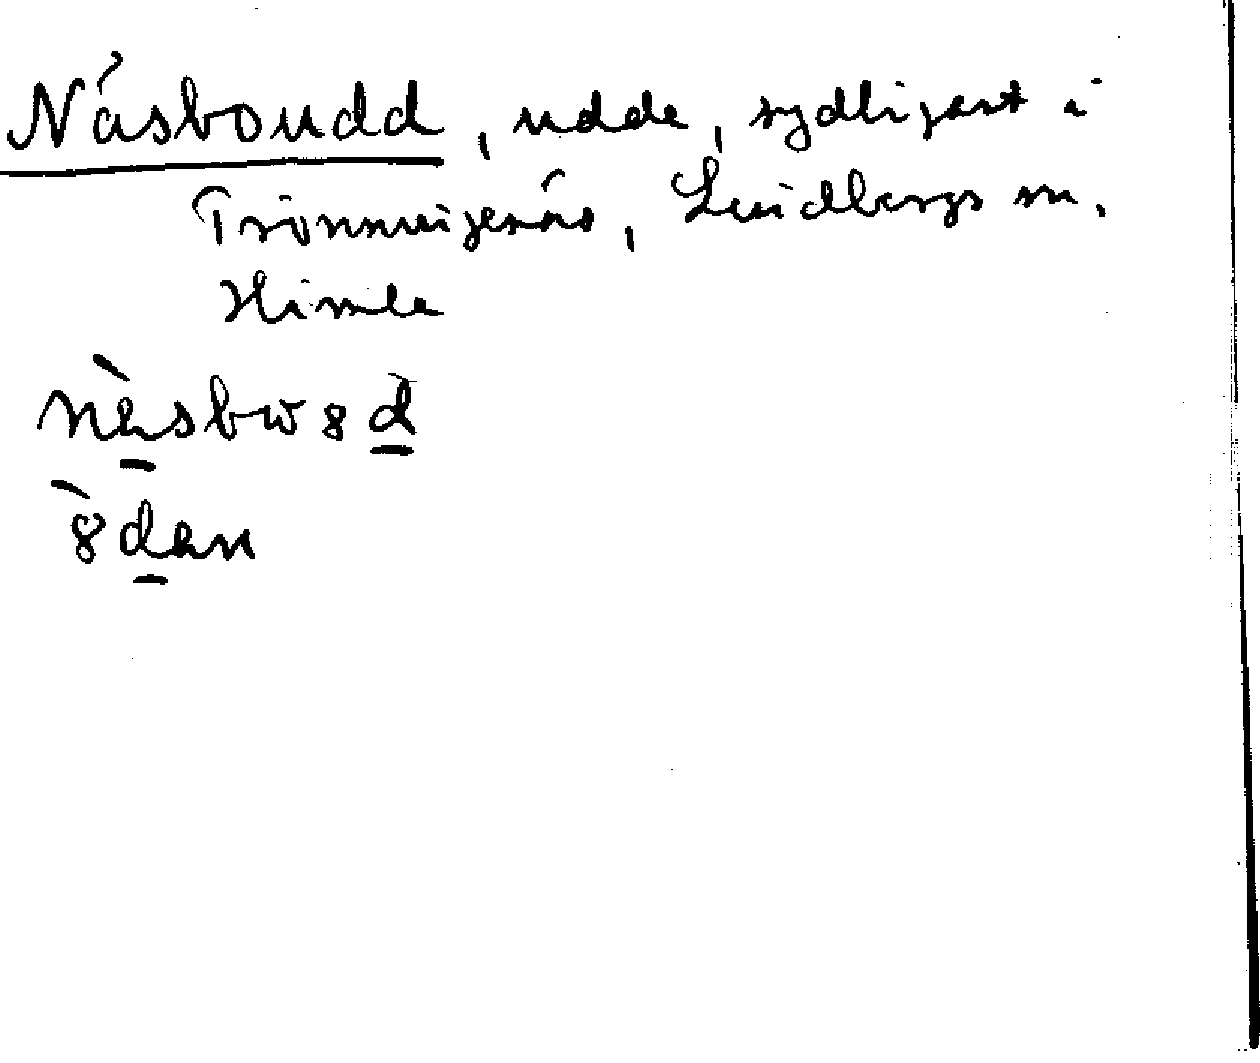 Näsboudd, udde, sydligast i
Trönningenäs, Lindbergs sn,
Himle